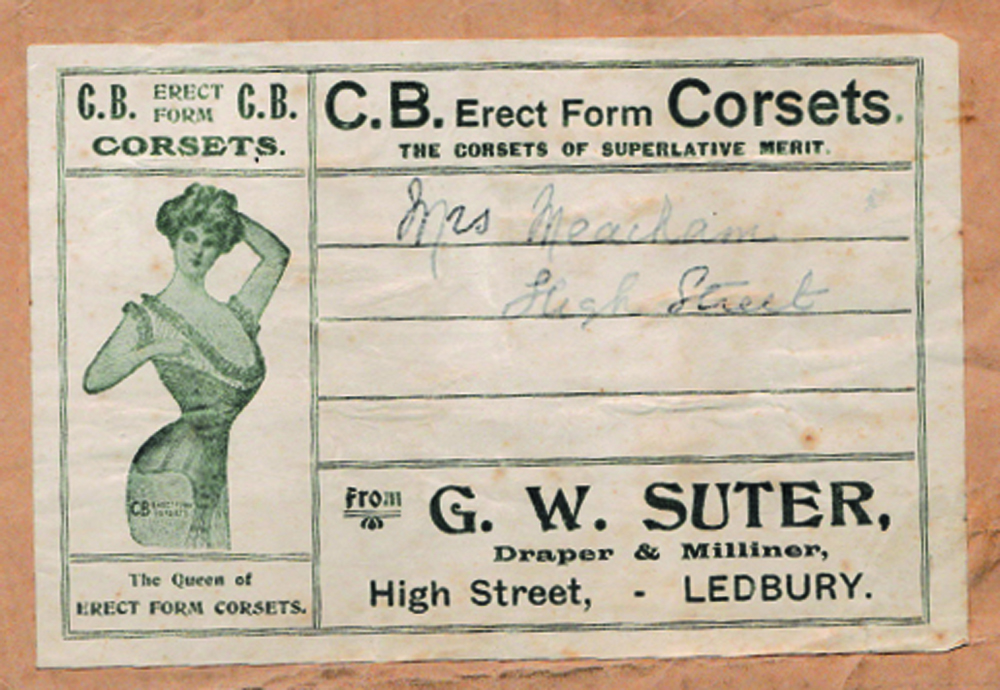 C.B. ERECT FORM C.B.
CORSETS.
The Queen of
ERECT FORM CORSETS.
C.B. Erect Form Corsets.
THE CORSETS OF SUPERLATIVE MERIT.
Mrs Meacham
High Street
From G. W. SUTER,
Draper & Milliner,
High Street, - LEDBURY.
CB